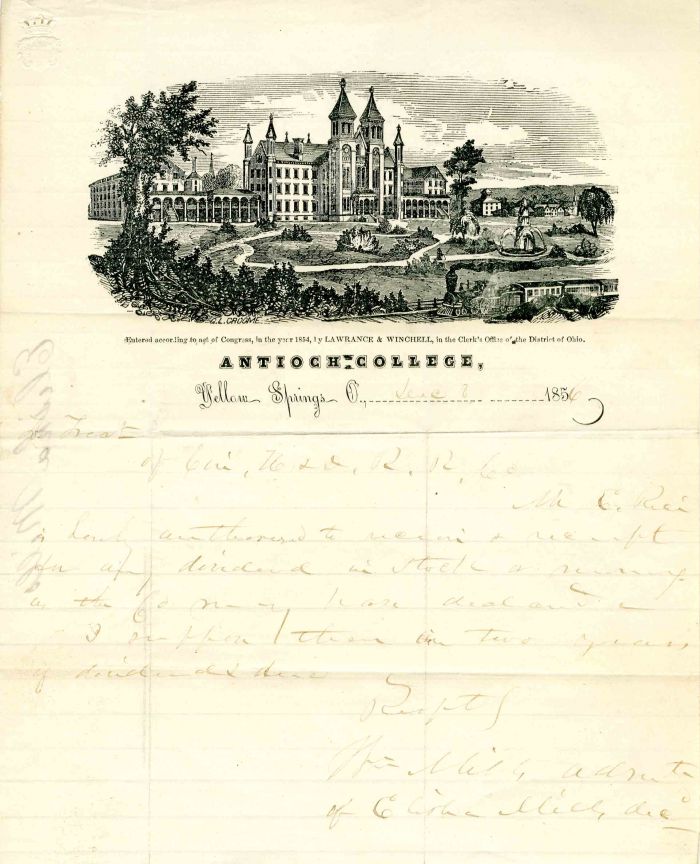 G.L. CROOME
Entered according to act of Congress, in the year 1854, by LAWRANCE & WINCHELL, in the Clerk's Office of the District of Ohio.
ANTIOCH COLLEGE,
Yellow Springs O., Dec 8 1856
Treas
of Cin, H & D, R. R. Co
Mr E. Rice
is hereby authorised to receive & receipt
for any dividend in stock or money
as the Co may have declared
I suppose there are two years
of dividends due
Respt
Wm Mills admr
of Elisha Mills dec